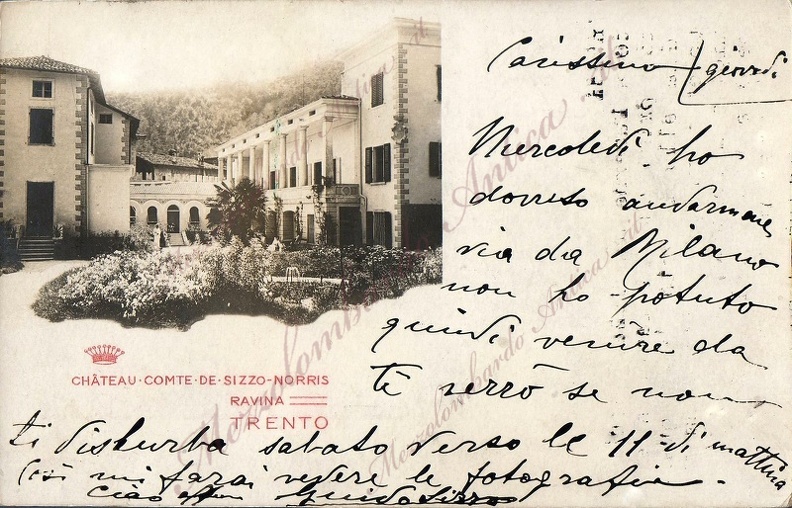 Carissimo giovedi
Mercoledì ho
dovuto andarmene
via da Milano
non ho potuto
quindi venire da
te verrò se non
ti disturba sabato verso le 11 di mattina
così mi farai vedere le fotografie.
Ciao Guido Sizzo
CHÂTEAU·COMTE·DE·SIZZO-NORRIS
RAVINA
TRENTO
Mezzolombardo Antica .it
Mezzolombardo Antica .it